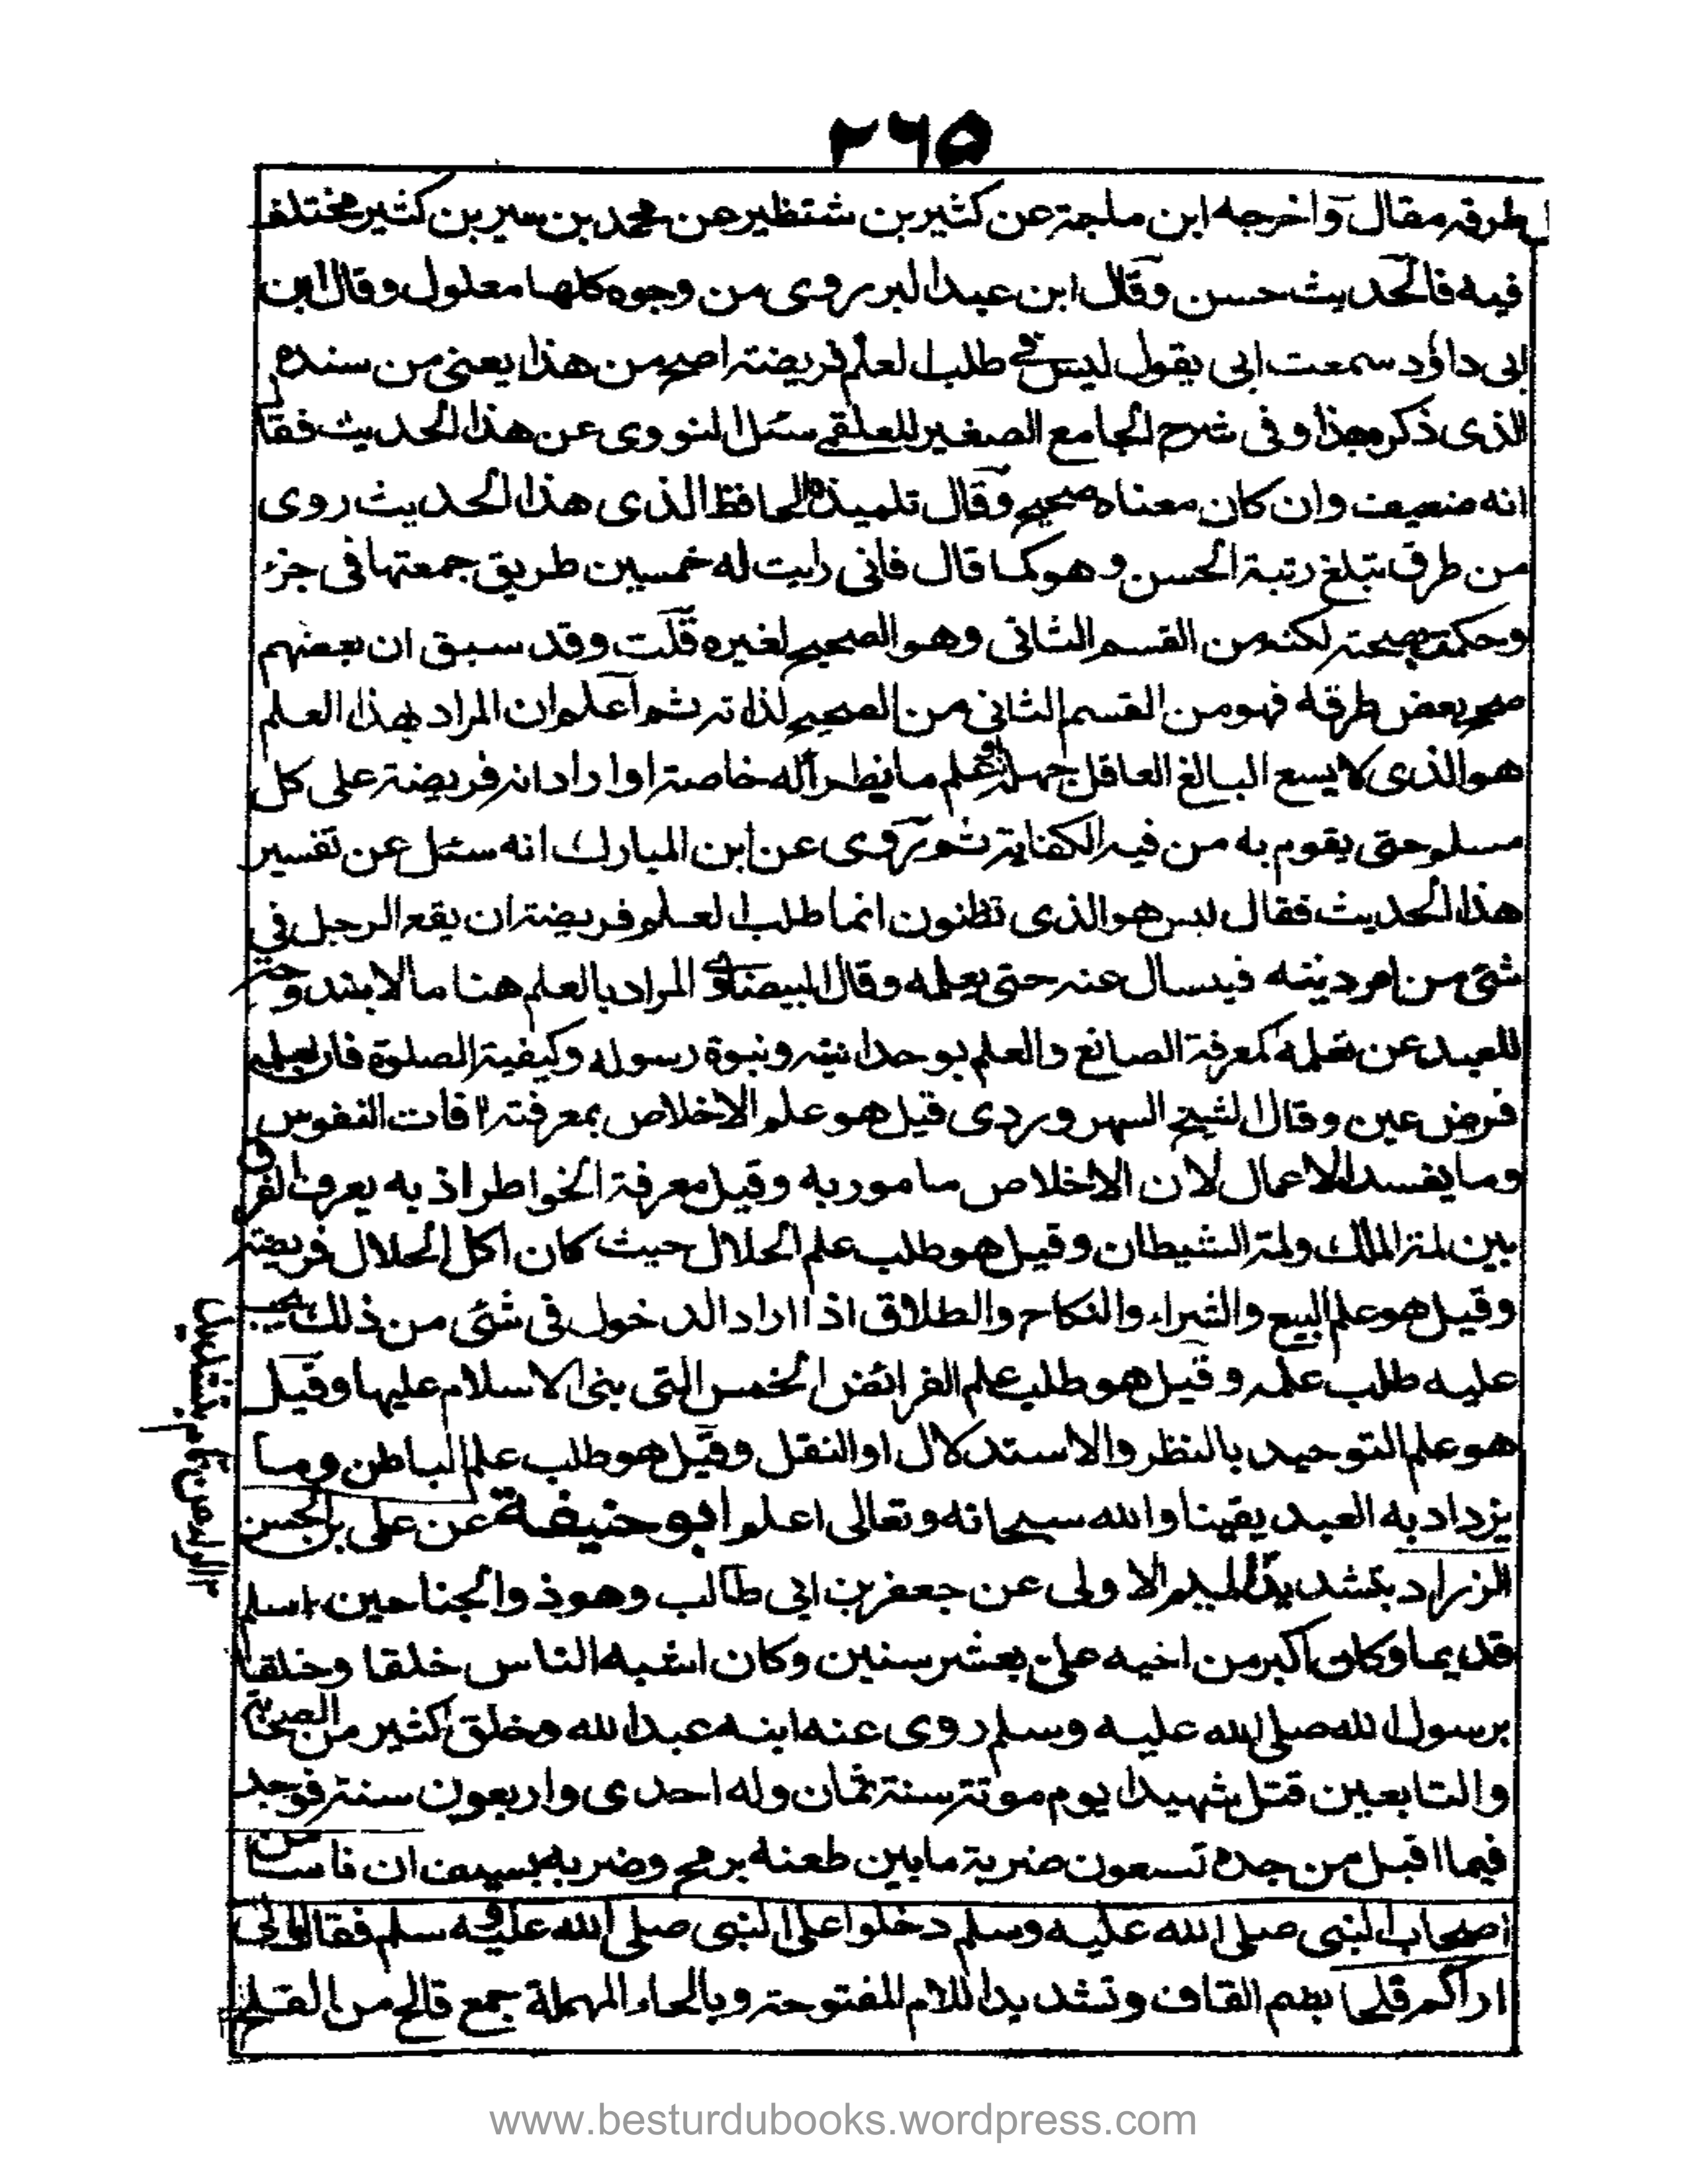 ٢٦٥
طرقه مقال واخرجه ابن ماجة عن كثير بن شنظير عن محمد بن سيرين كثير مختلف
فيه فالحديث حسن وقال ابن عبد البر روى من وجوه كلها معلول وقال ابن
ابى داؤد سمعت ابى يقول ليس فى طلب العلم فريضة اصح من هذا يعنى من سنده
الذى ذكره هذا وفى شرح الجامع الصغير للعلقمى سئل النووى عن هذا الحديث فقال
انه ضعيف وان كان معناه صحيح وقال تلميذه الحافظ الذى هذا الحديث روى
من طرق تبلغ رتبة الحسن وهو كما قال فانى رايت له خمسين طريق جمعتها فى جزء
وحكمت بصحته لكنه من القسم الثانى وهو الصحيح لغيره قلت وقد سبق ان بعضهم
صحح بعض طرقه فهو من القسم الثانى من الصحيح لذاته ثم اعلم ان المراد بهذا العلم
هو الذى لا يسع البالغ العاقل جهله او علم ما يطرأ له خاصة او اراد انه فريضة على كل
مسلم حتى يقوم به من فيه الكفاية ثم روى عن ابن المبارك انه سئل عن تفسير
هذا الحديث فقال ليس هو الذى تظنون انما طلب العلم فريضة ان يقع الرجل فى
شئ من امر دينه فيسال عنه حتى يعلمه وقال البيضاوى المراد بالعلم هنا ما لا مندوحة
للعبد عن تعلمه كمعرفة الصانع والعلم بوحدانيته ونبوة رسوله وكيفية الصلوة فان تعلمه
فرض عين وقال الشيخ السهروردى قيل هو علم الاخلاص بمعرفته آفات النفوس
وما يفسد الاعمال لان الاخلاص مامور به وقيل معرفة الخواطر اذ به يعرف الفرق
بين لمة الملك ولمة الشيطان وقيل هو طلب علم الحلال حيث كان اكل الحلال فريضة
وقيل هو علم البيع والشراء والنكاح والطلاق اذا اراد الدخول فى شئ من ذلك يجب
عليه طلب علمه وقيل هو طلب علم الفرائض الخمس التى بنى الاسلام عليها وقيل
هو علم التوحيد بالنظر والاستدلال او النقل وقيل هو طلب علم الباطن وما
يزداد به العبد يقينا والله سبحانه وتعالى اعلم ابو حنيفة عن على بن الحسن
الزراد بتشديد الميم الاولى عن جعفر بن ابى طالب وهو ذو الجناحين اسلم
قديما وكان اكبر من اخيه على بعشر سنين وكان اشبه الناس خلقا وخلقا
برسول الله صلى الله عليه وسلم روى عنه ابنه عبد الله وخلق كثير من الصحابة
والتابعين قتل شهيدا يوم موتة سنة ثمان وله احدى واربعون سنة فوجد
فيما اقبل من جده تسعون ضربة مابين طعنه برمح وضربه بسيف ان ناسا من
اصحاب النبى صلى الله عليه وسلم دخلوا على النبى صلى الله عليه وسلم فقال مالى
اراكم قلحا بضم القاف وتشديد اللام المفتوحة وبالحاء المهملة جمع قالح من القلح